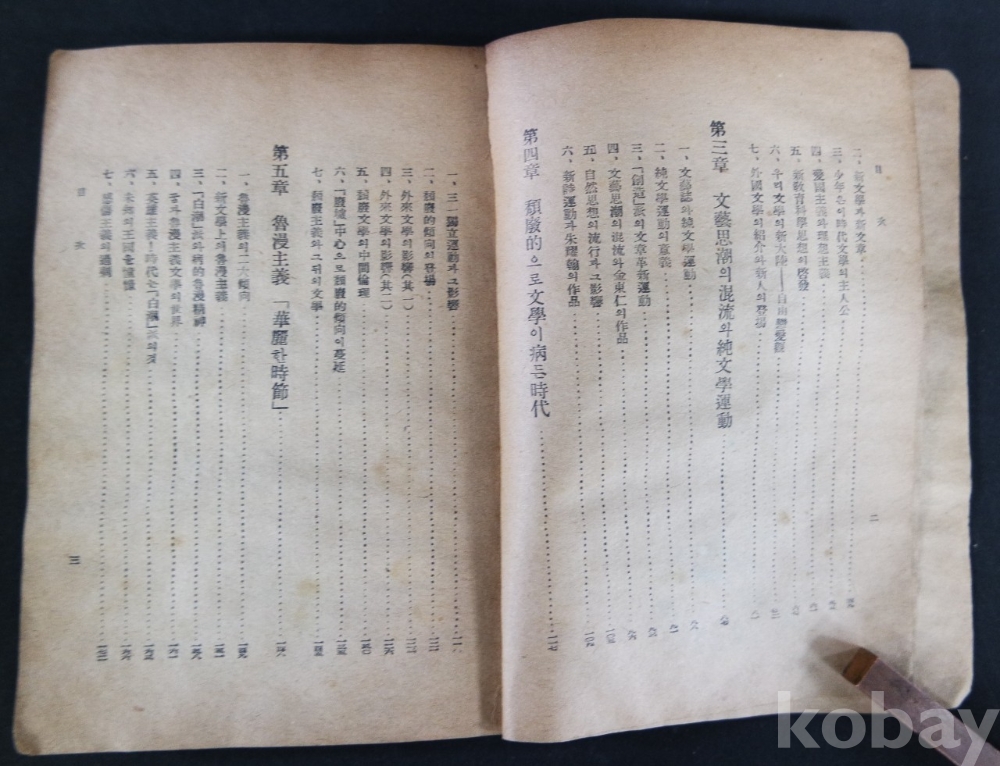 目次
二、新文學과 新文章
三、少年은 이 時代文學의 主人公
四、愛國主義와 理想主義
五、新敎育科學思想의 啓發
六、우리文學의 新大陸——自由戀愛觀
七、外國文學의 紹介와 新人의 登場
第三章 文藝思潮의 混流와 純文學運動
一、文藝誌와 純文學運動
二、純文學運動의 意義
三、「創造」派의 文章革新運動
四、文藝思潮의 混流와 金東仁의 作品
五、自然思想의 流行과 그 影響
六、新詩運動과 朱耀翰의 作品
第四章 頹廢的으로 文學이 病든 時代
二
一、三·一獨立運動과 그 影響
二、頹廢的傾向의 登場
三、外來文學의 影響(其一)
四、外來文學의 影響(其二)
五、頹廢文學의 中間倫理
六、「廢墟」中心으로 頹廢的傾向이 蔓延
七、頹廢主義와 그 뒤의 文學
第五章 魯漫主義「華麗한 時節」
一、魯漫主義의 二大傾向
二、新文學上의 魯漫主義
三、「白潮」派와 病的 魯漫精神
四、꿈과 魯漫主義文學의 世界
五、英雄主義!時代는「白潮」派의 것
六、未知의 王國을 憧憬
七、感傷主義의 過剩
目次
三
kobay